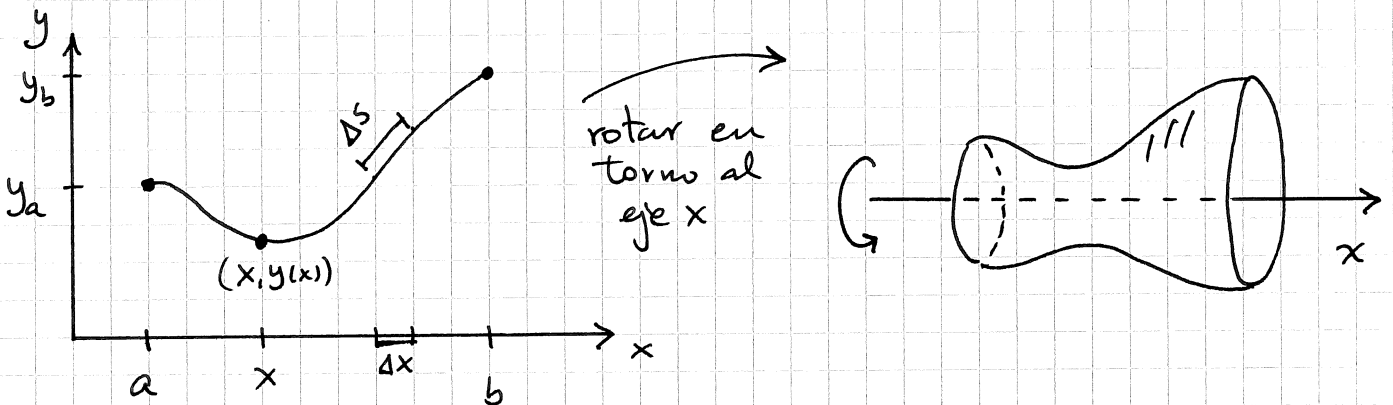 y
y_b
y_a
Δs
(x, y(x))
a
x
Δx
b
x
rotar en
torno al
eje x
x